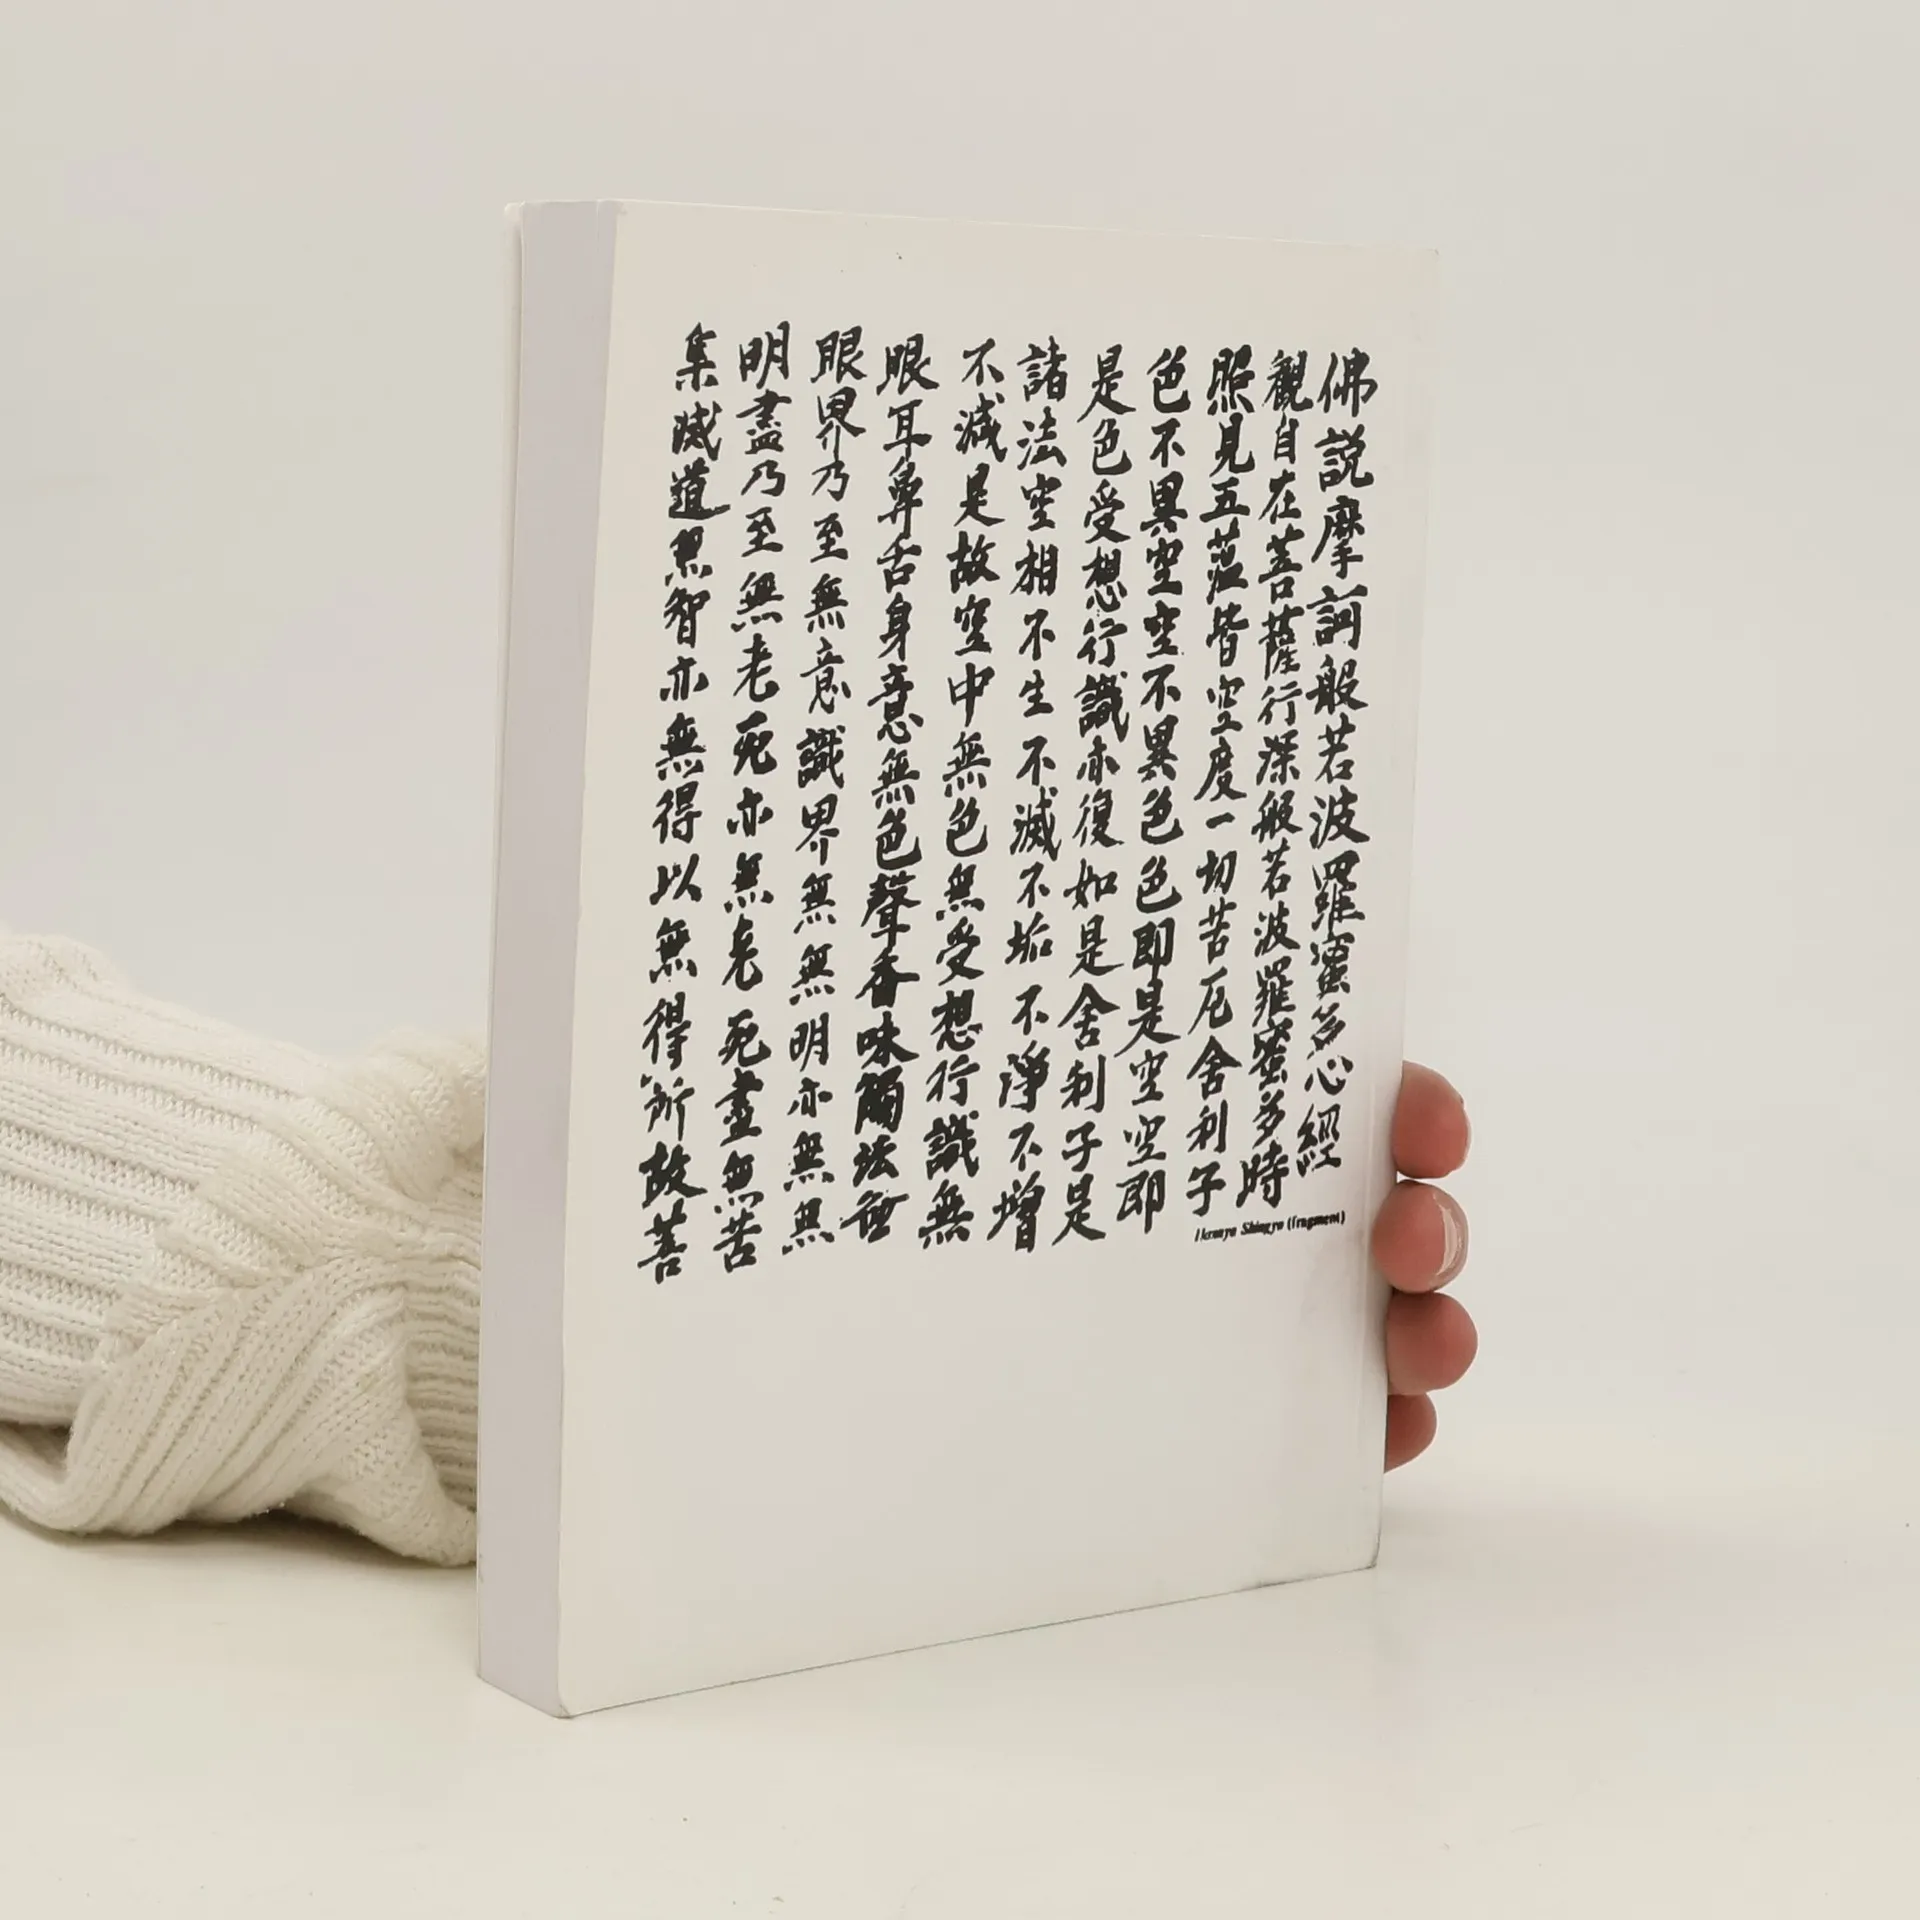 佛説摩訶般若波羅蜜多心經
觀自在菩薩行深般若波羅蜜多時
照見五蘊皆空度一切苦厄舍利子
色不異空空不異色色即是空空即
是色受想行識亦復如是舍利子是
諸法空相不生不滅不垢不淨不增
不減是故空中無色無受想行識無
眼耳鼻舌身意無色聲香味觸法無
眼界乃至無意識界無無明亦無無
明盡乃至無老死亦無老死盡無苦
集滅道無智亦無得以無得所故菩
Hannya Shingyo (fragment)